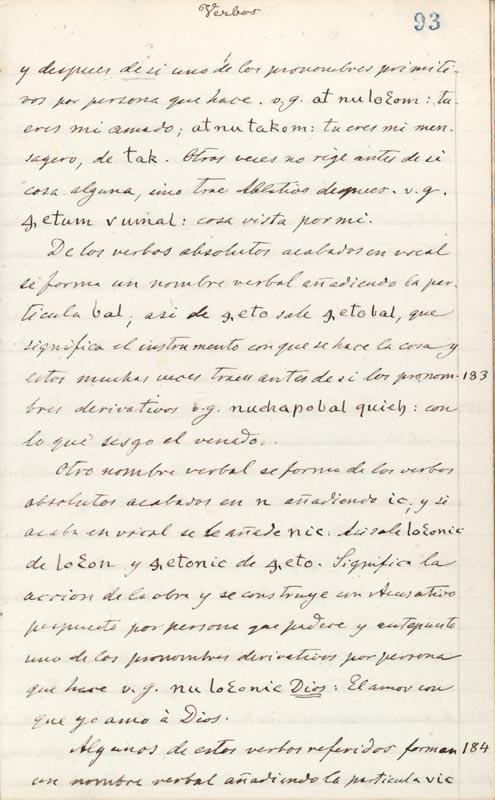 Verbos
93
y despues de si uno de los pronombres primiti-
vos por persona que hace. v.g. at nu loɛom: tu
eres mi amado; at nu takom: tu eres mi men-
sagero, de tak. Otras veces no rige antes de si
cosa alguna, sino trae Ablativo despues. v.g.
ꜯetum vumal: cosa vista por mi.
De los verbos absolutos acabados en vocal
se forma un nombre verbal añadiendo la par-
ticula bal; asi de ꜯeto sale ꜯetobal, que
significa el instrumento con que se hace la cosa y
estos muchas veces traen antes de si los pronom- 183
bres derivativos v.g. nuchapobal quieh: con
lo que sesgo el venado.
Otro nombre verbal se forma de los verbos
absolutos acabados en n añadiendo ic, y si
acaba en vocal se le añade nic: Asi sale loɛonic
de loɛon y ꜯetonic de ꜯeto. Significa la
accion de la obra y se construye con Acusativo
pospuesto por persona que padece y antepuesto
uno de los pronombres derivativos por persona
que hace v.g. nu loɛonic Dios: El amor con
que yo amo à Dios.
Algunos de estos verbos referidos forman 184
un nombre verbal añadiendo la particula vic